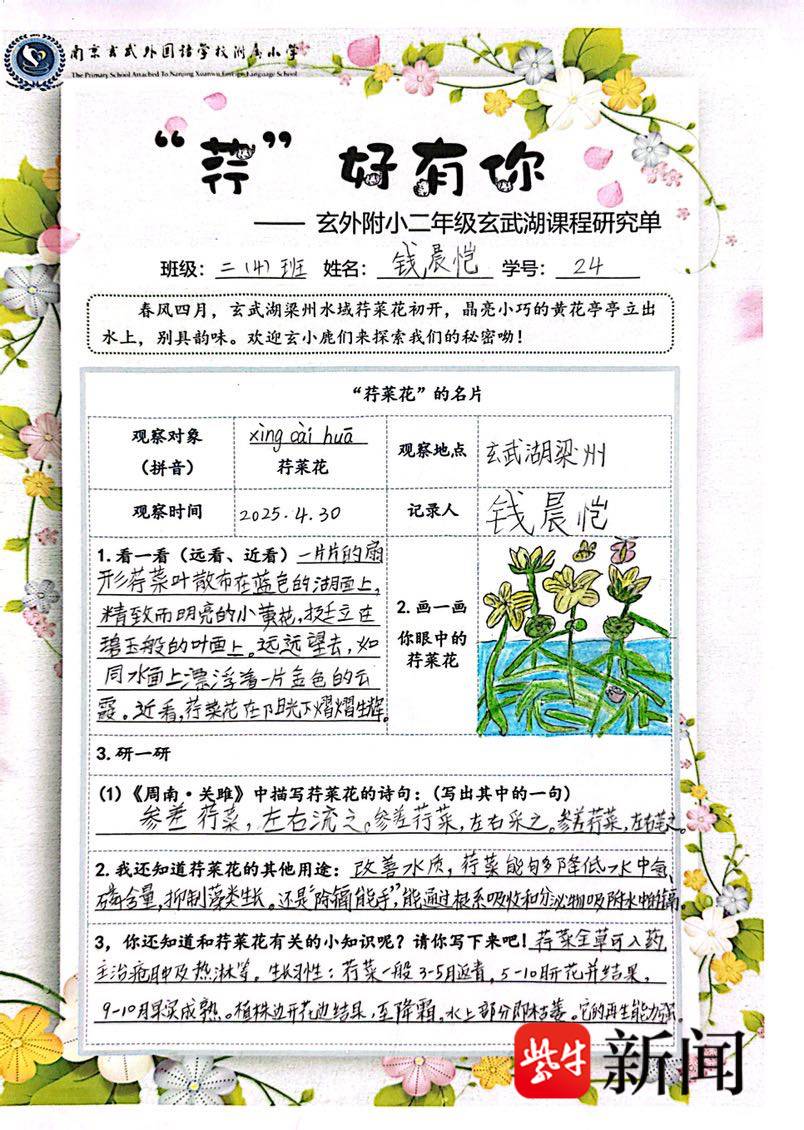 南京玄武外国语学校附属小学
The Primary School Attached To Nanjing Xuanwu Foreign Language School
“荇” 好有你
—— 玄外附小二年级玄武湖课程研究单
班级：二（4）班 姓名：钱晨恺 学号：24
春风四月，玄武湖梁州水域荇菜花初开，晶亮小巧的黄花亭亭立出
水上，别具韵味。欢迎玄小鹿们来探索我们的秘密呦！
“荇菜花”的名片
观察对象
（拼音）
xìng cài huā
荇菜花
观察地点
玄武湖梁州
观察时间
2025.4.30
记录人
钱晨恺
1. 看一看（远看、近看）一片片的扇
形荇菜叶散布在蓝色的湖面上，
精致而明亮的小黄花，挺立在
碧玉般的叶面上。远远望去，如
同水面上漂浮着一片金色的云
霞。近看，荇菜花在阳光下熠熠生辉。
2. 画一画
你眼中的
荇菜花
3. 研一研
（1）《周南·关雎》中描写荇菜花的诗句：（写出其中的一句）
参差荇菜，左右流之。参差荇菜，左右采之。参差荇菜，左右芼之。
2. 我还知道荇菜花的其他用途：改善水质，荇菜能够降低水中氮、
磷含量，抑制藻类生长。还是“除镉能手”能通过根系吸收和分泌物吸附水中的镉。
3，你还知道和荇菜花有关的小知识呢？请你写下来吧！荇菜全草可入药，
主治疮肿及热淋等。生长习性：荇菜一般3-5月返青，5-10月开花并结果，
9-10月果实成熟。植株边开花边结果，至降霜，水上部分即枯萎。它的再生能力强。
紫牛新闻